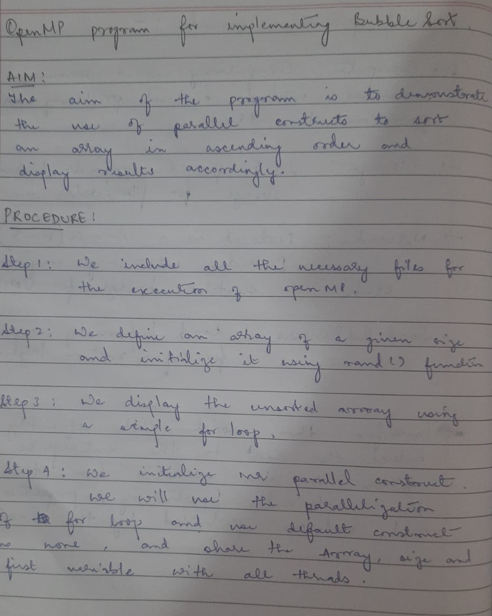 OpenMP program for implementing Bubble Sort.
AIM:
The aim of the program is to demonstrate
the use of parallel constructs to sort
an array in ascending order and
display results accordingly.
PROCEDURE:
Step 1: We include all the necessary files for
the execution of openMP.
Step 2: We define an array of a given size
and initialize it using rand() function
Step 3: We display the unsorted array using
a simple for loop.
Step 4: We initialize our parallel construct.
we will use the parallelization
of for loop and use default construct
as none, and share the Array, size and
first variable with all threads.